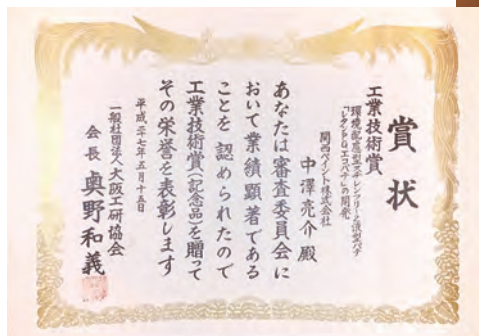 賞状
工業技術賞
環境配慮型スチレンフリー2液型パテ
「レタンPGエコパテ」の開発
関西ペイント株式会社
中澤亮介殿
あなたは審査委員会に
おいて業績顕著である
ことを認められたので
工業技術賞(記念品)を贈って
その栄誉を表彰します
平成二十七年五月十五日
一般社団法人大阪工研協会
会長奥野和義